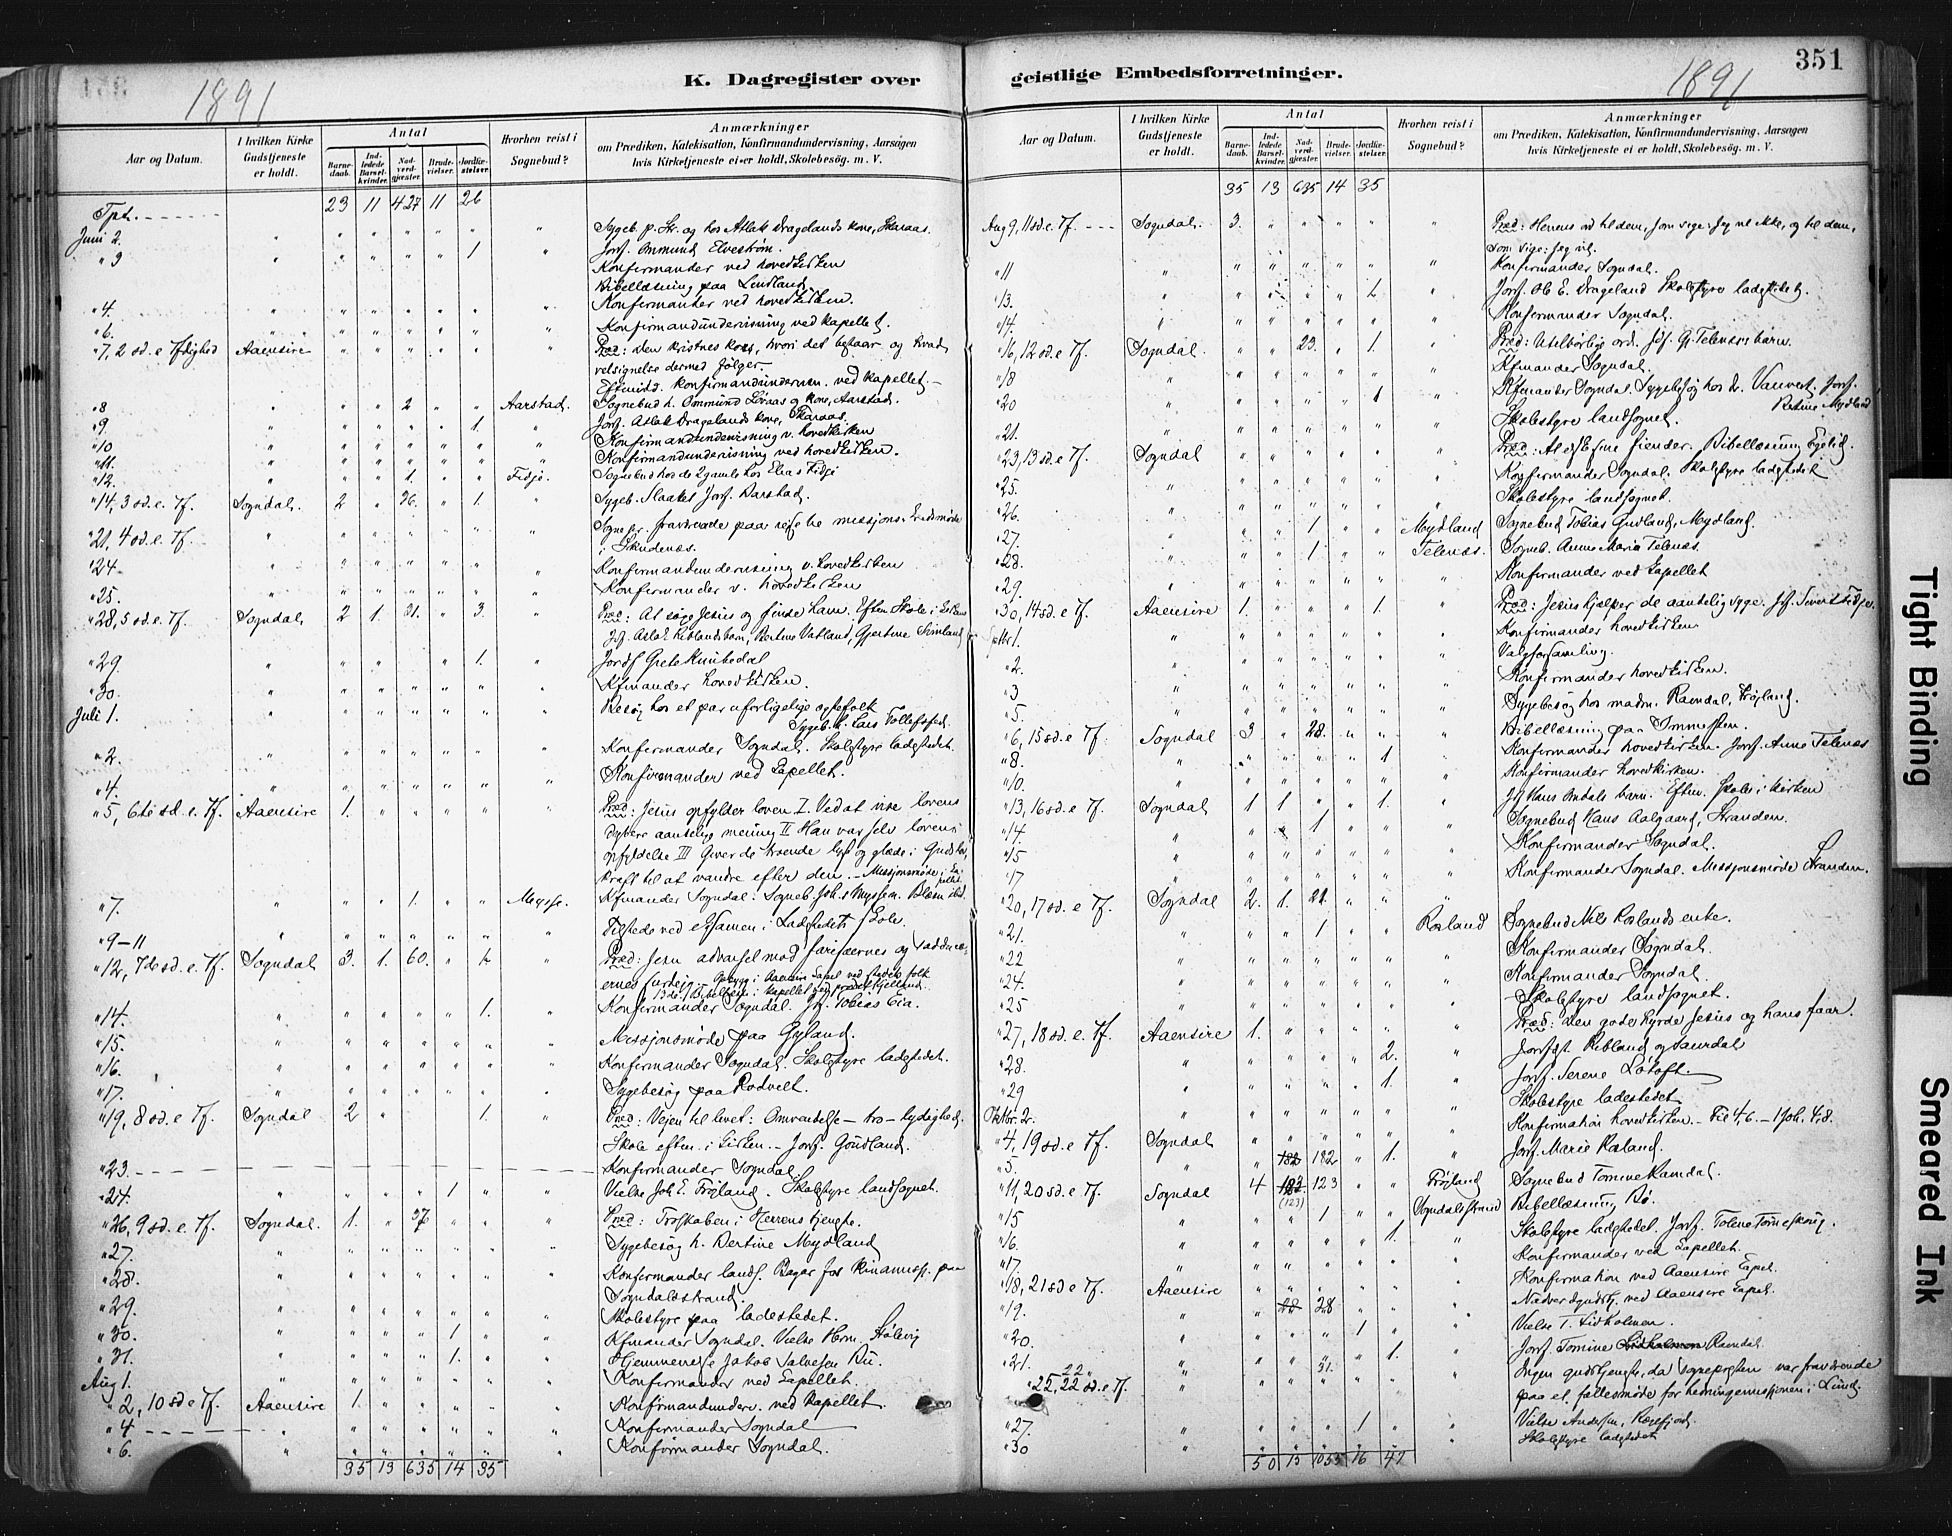 351
1891
K. Dagregister over
Aar og Datum.
I hvilken Kirke Gudstjeneste er holdt.
Antal
Barne-daab.
Ind-ledede Barsel-kvinder.
Nad-verd-gjæster.
Brude-vielser.
Jordfæ-stelser.
Hvorhen reist i Sognebud?
Anmærkninger
om Prædiken, Katekisation, Konfirmandundervisning, Aarsagen
hvis Kirketjeneste ei er holdt, Skolebesøg. m. V.
Tpt. 23 11 427 11 26
Juni 2. " " " " " " Sygeb. p. Str. og hos Atlak Dragelands kone, Skaraas.
" 3 " " " " " 1 " Jorf. Ommund Elvestrøm.
Konfirmander ved hovedkirken
Bibellæsning paa Lindland
" 4. " " " " " " Konfirmander ved hovedkirken.
" 6. " " " " " " Konfirmandundervisning ved kapellet.
" 7, 2 sd. e Tf Aaensire " " " " " " Præd: Den kristnes kors, hvori det bestaar og hvad
velsignelse dermed følger.
Eftmidd. konfirmandundervisn. ved kapellet. –
" 8 " " " 2 " " Aarstad. Sognebud h. Ommund og kone, Aarstad.
" 9. " " " " " 1. " Jorf. Atlak Dragelands kone, Skaraas.
" 10 " " " " " " Konfirmandundervisning v. hovedkirken
" 11. " " " " " " Konfirmandundervisning ved hovedkirken.
" 12. " " " 1. " " Fidje. Sognebud hos de 2 gamle hos Elias Fidje
" 14, 3 sd. e. Tf. Sogndal. 2 " 26. " 1. " Sygeb. Slaaket Jorf. Aarstad.
" 21, 4 sd. e. Tf. " " " " " " Sognepr. fraværende paa missjons
i Skudenæs.
" 24. " " " " " " Konfirmandundervisning v. hovedkirken
" 25. " " " " " " Konfirmander v. hovedkirken
" 28, 5 sd. e. Tf. Sogndal 2 1. 31. " 3. " Præd: At søge Jesus og finde ham. Eftm. Skole i kirken
Jf. Aslak Riblands barn, Bertine Vatland, Gjertine
" 29. " " " " " 1. " Jordf Grete
" 30. " " " " " " Kfmander hovedkirken.
Juli 1. " " " " " " Besøg hos et par uforligelige ægtefolk
Sygeb. h. Lars Tollefsen.
" 2. " " " " " " Konfirmander Sogndal. Skolestyre ladestedet.
" 4. " " " " " " Konfirmander ved Kapellet.
" 5, 6te sd. e. Tf. Aaensire 1. " " " " " Præd: Jesus opfylder loven I. Ved at vise lovens
dybere aandelige mening II Han var selv lovens
opfyldelse III Giver de troende lyst og glæde i Guds lov
kraft til at vandre efter den. – Missjonsmøde i kapellet
" 7. " " " 1. " " Mysse. Kfmander Sogndal. Sogneb. Joh.
" 9–11 " " " " " " Tilstede ved Examen i Ladestedets Skole.
" 12, 7de sd. e. Tf. Sogndal 3. 1. 60. " 1. " Præd: Jesu advarsel mod farisæernes og saddu-
cæernes surdeig –
" 14. " " " " " 1. " Konfirmander Sogndal. Jf. Tobias Eia.
" 15. " " " " " " Missjonsmøde paa Gyland.
" 16. " " " " " " Konfirmander Sogndal. Skolestyre ladestedet.
" 17. " " " " " " Sygebesøg paa Rodvelt.
" 19, 8 sd. e Tf. Sogndal 2 " 1. " Præd: Veien til livet: Omvendelse – tro – lydighed.
Skole eftm. i kirken. – Jorf. Goudland.
" 23. – – – Konfirmander Sogndal
" 24. " " " " 1 " " Vielse Joh. E. Frøyland. Skolestyre landsognet.
" 26, 9 sd. e. Tf. Sogndal. 1. " 37 " " " Præd: Troskaben i Herrens tjeneste.
" 27. " " " " " " Sygebesøg h. Bertine Mydland
" 28. " " " " " " Konfirmander lands. Bazar for Kinamissj. paa
Sogndalsstrand.
" 29. " " " " " " Skolestyre paa ladestedet.
" 30. " " " " 1 " " Kfmander Sogndal. Vielse Herm. Stølevig
" 31. " " " " 1. " " Hjemmevielse Jakob Salvesen Bu.
Aug 1. " " " " " " Konfirmander ved Kapellet.
" 2, 10 sd e Tf. Aaensire 1. " " " " " Konfirmandunderv. ved Kapellet
" 4 – – – " " " " " " Konfirmander Sogndal
" 6. " " " " " " Konfirmander Sogndal.
35 13 635 14 35
geistlige Embedsforretninger.
1891
351
Aar og Datum.
I hvilken Kirke Gudstjeneste er holdt.
Antal
Barne-daab.
Ind-ledede Barsel-kvinder.
Nad-verd-gjæster.
Brude-vielser.
Jordfæ-stelser.
Hvorhen reist i Sognebud?
Anmærkninger
om Prædiken, Katekisation, Konfirmandundervisning, Aarsagen
hvis Kirketjeneste ei er holdt, Skolebesøg. m. V.
35 13 635 14 35
Aug 9, 11 sd. e. Tf. – – – Sogndal. 3. " " " " " Præd: Herrens ord til dem, som sige: Jeg vil ikke, og til dem,
som sige: Jeg vil.
" 11 " " " " " " Konfirmander Sogndal.
" 13. " " " " " 2 " Jorf. Ole E. Drageland Skolestyre ladestedet.
" 14. " " " " " " Konfirmander Sogndal.
" 16, 12 sd. e Tf. Sogndal. " " 23. " 1. " Præd: Utilbørlige ord. Jdf. G. Telenæs's barn.
" 18 " " " " " " Kfmander Sogndal.
" 20 " " " " " 1 " Kfmander Sogndal. Sygebesøg hos Jorf.
Bertine Mydland
" 21. " " " " " " Skolestyre landsognet.
" 23, 13 sd. e Tf. Sogndal " " " " " " Præd: At elske sine fiender. Bibellæsning
" 25. " " " " " " Konfirmander Sogndal. Skolestyre ladestedet
" 26. " " " " " " Skolestyre i landsognet.
" 27. " " " 1 " " Mydland Sognebud Tobias Gudland, Mydland.
" 28. " " " 1 " " Telenæs. Sogneb. Anne Maria Telenæs.
" 29. " " " " " " Konfirmander ved kapellet
" 30, 14 sd. e Tf. Aaensire 1. " " " 1. " Præd: Jesus hjælper de aandelig syge. Jf. Sivert Fidje.
Septbr 1. " " " " " " Konfirmander hovedkirken
" 2. " " " " " " Valgforsamling.
" 3 " " " " " " Konfirmander hovedkirken.
" 5. " " " " " " Sygebesøg hos madm. Ramdal, Frøyland.
" 6, 15 sd. e Tf. Sogndal 3 " 28. " " " Bibellæsning paa
" 8. " " " " " 1 " Konfirmander hovedkirken. Jorf. Anne Telenæs
" 10. " " " " " " Konfirmander hovedkirken.
" 13, 16 sd. e Tf. Sogndal 1 1 " " 1. " Jf Hans barn. Eftm. Skole i kirken
" 14. " " " 1 " " Sognebud Hans Aalgaard, Stranden.
" 15 " " " " " " Konfirmander Sogndal.
" 17 " " " " " " Konfirmander Sogndal. Missjonsmøde Stranden.
" 20, 17 sd. e Tf. Sogndal 2. 1. 21. " " "
" 21. " " " 1 " " Røsland Sognebud Nils Røslands enke.
" 22 " " " " " " Konfirmander Sogndal.
" 24. " " " " " " Konfirmander Sogndal
" 25 " " " " " " Skolestyre landsognet.
" 27, 18 sd. e. Tf. Aaensire 1. " " " " " Præd: Den gode hyrde Jesus og hans faar.
" 28. " " " " " 2. " Jorfdst. Ribland og
" 29 " " " " " 1. " Jorf. Serene Løtoft.
Oktbr. 2. " " " " " " Skolestyre ladestedet
" 4, 19 sd. e Tf. Sogndal " " " " " " Konfirmation hovedkirken. –
" 5. " " 182 182 " 1. " Jorf. Marie Røsland.
" 11, 20 sd. e. Tf. Sogndal 4 182 (123) 123 " " Frøyland Sognebud Tomine Ramdal.
" 15 " " " 1 " " Sogndalsstrand Bibellæsning Bø.
" 16. " " " " " 1. " Skolestyre ladestedet. Jorf. Tolene
" 17. " " " " " " Konfirmander ved kapellet.
" 18, 21 sd. e Tf. Aaensire " " " " " " Konfirmation ved Aaensire kapel.
" 19. " " 28 28 " " " Nadverdgudstj. ved Aaensire kapel.
" 20. " " " " 1 " " Vielse T. Lidholmen.
" 21. " " " " " 1. " Jorf. Tomine Lidholmen Ramdal.
" 25, 22 sd. e Tf. " " " 31. " " " Ingen gudstjeneste, da sognepresten var fraværende
paa et fællesmøde for hedningemissjonen i Lund.
" 27. " " " " 1 " " Vielse Andersen, Rosfjord.
" 30 " " " " " " Skolestyre ladestedet
50 15 1053 16 47
Tight Binding
Smeared Ink